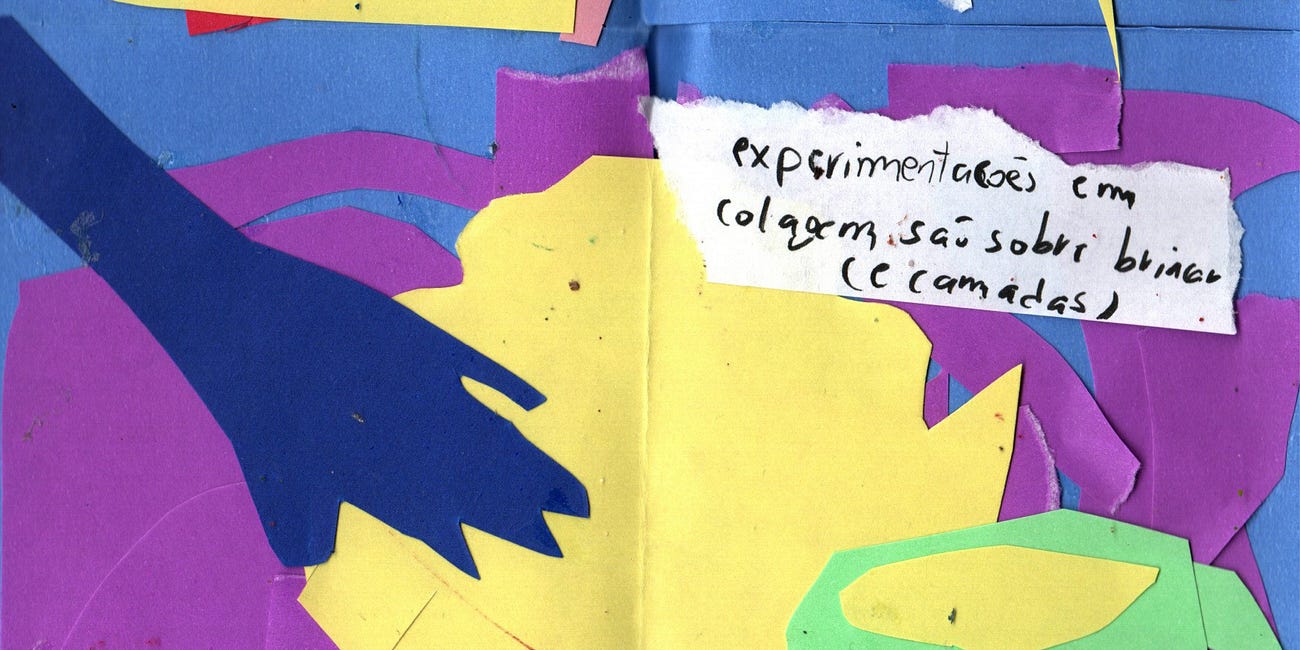 experimentações em
colagem são sobre brincar
(e camadas)